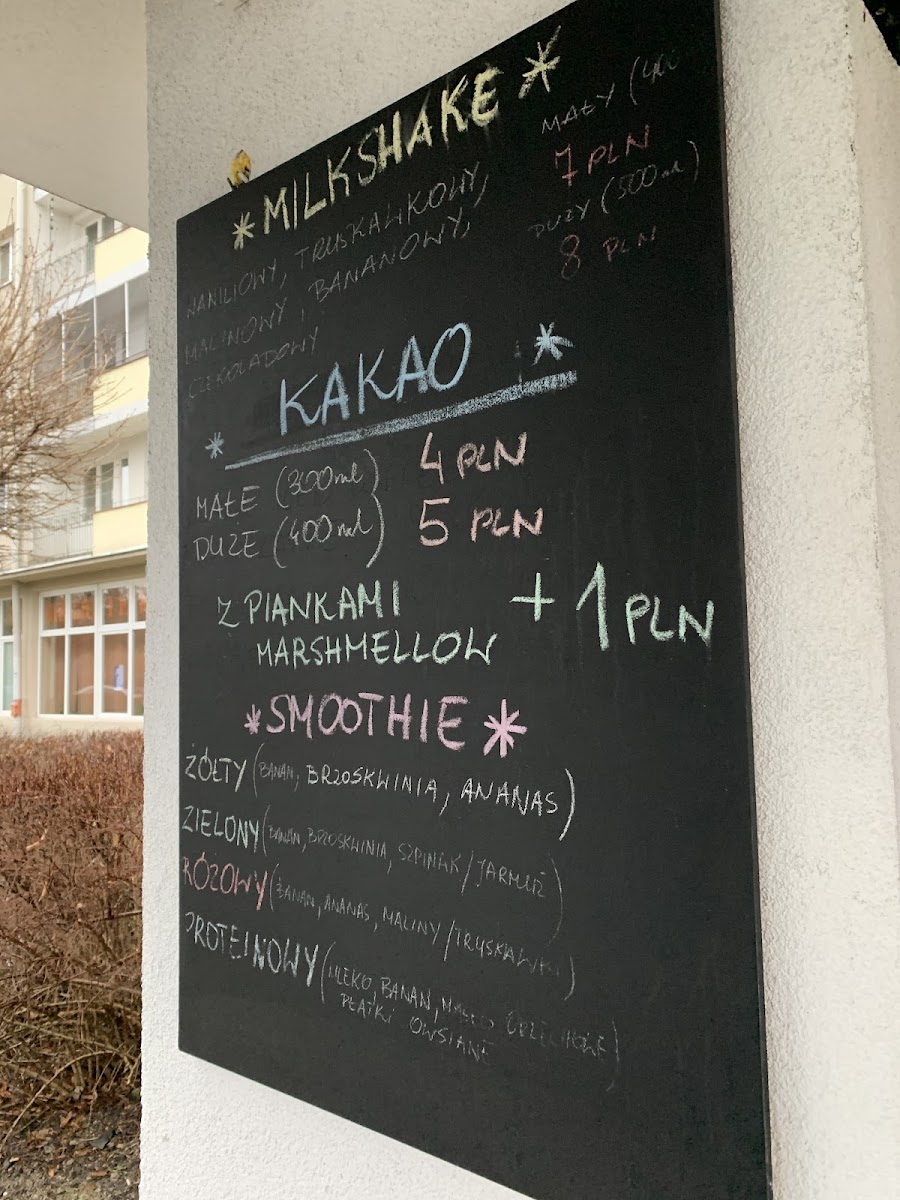 * MILKSHAKE *
WANILIOWY, TRUSKAWKOWY,
MALINOWY, BANANOWY,
CZEKOLADOWY
MAŁY (400
7 PLN
DUŻY (500ml)
8 PLN
* KAKAO *
MAŁE (300ml) 4 PLN
DUŻE (400ml) 5 PLN
Z PIANKAMI + 1 PLN
MARSHMELLOW
* SMOOTHIE *
ŻÓŁTY (BANAN, BRZOSKWINIA, ANANAS)
ZIELONY (BANAN, BRZOSKWINIA, SZPINAK/JARMUŻ)
RÓŻOWY (BANAN, ANANAS, MALINY/TRUSKAWKI)
PROTEINOWY (MLEKO, BANAN, MASŁO ORZECHOWE)
PŁATKI OWSIANE